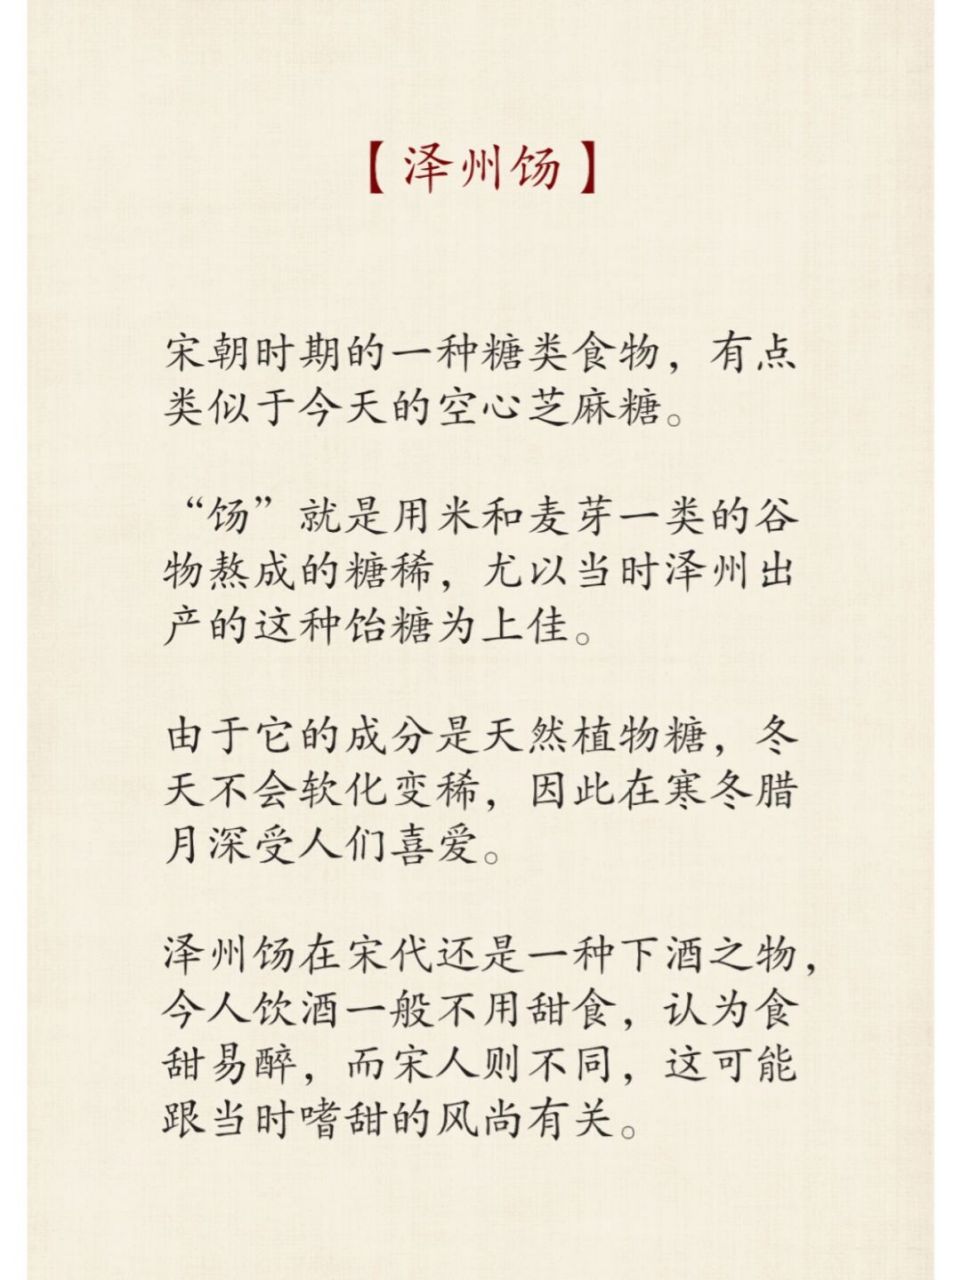 【泽州饧】
宋朝时期的一种糖类食物，有点
类似于今天的空心芝麻糖。
“饧”就是用米和麦芽一类的谷
物熬成的糖稀，尤以当时泽州出
产的这种饴糖为上佳。
由于它的成分是天然植物糖，冬
天不会软化变稀，因此在寒冬腊
月深受人们喜爱。
泽州饧在宋代还是一种下酒之物，
今人饮酒一般不用甜食，认为食
甜易醉，而宋人则不同，这可能
跟当时嗜甜的风尚有关。